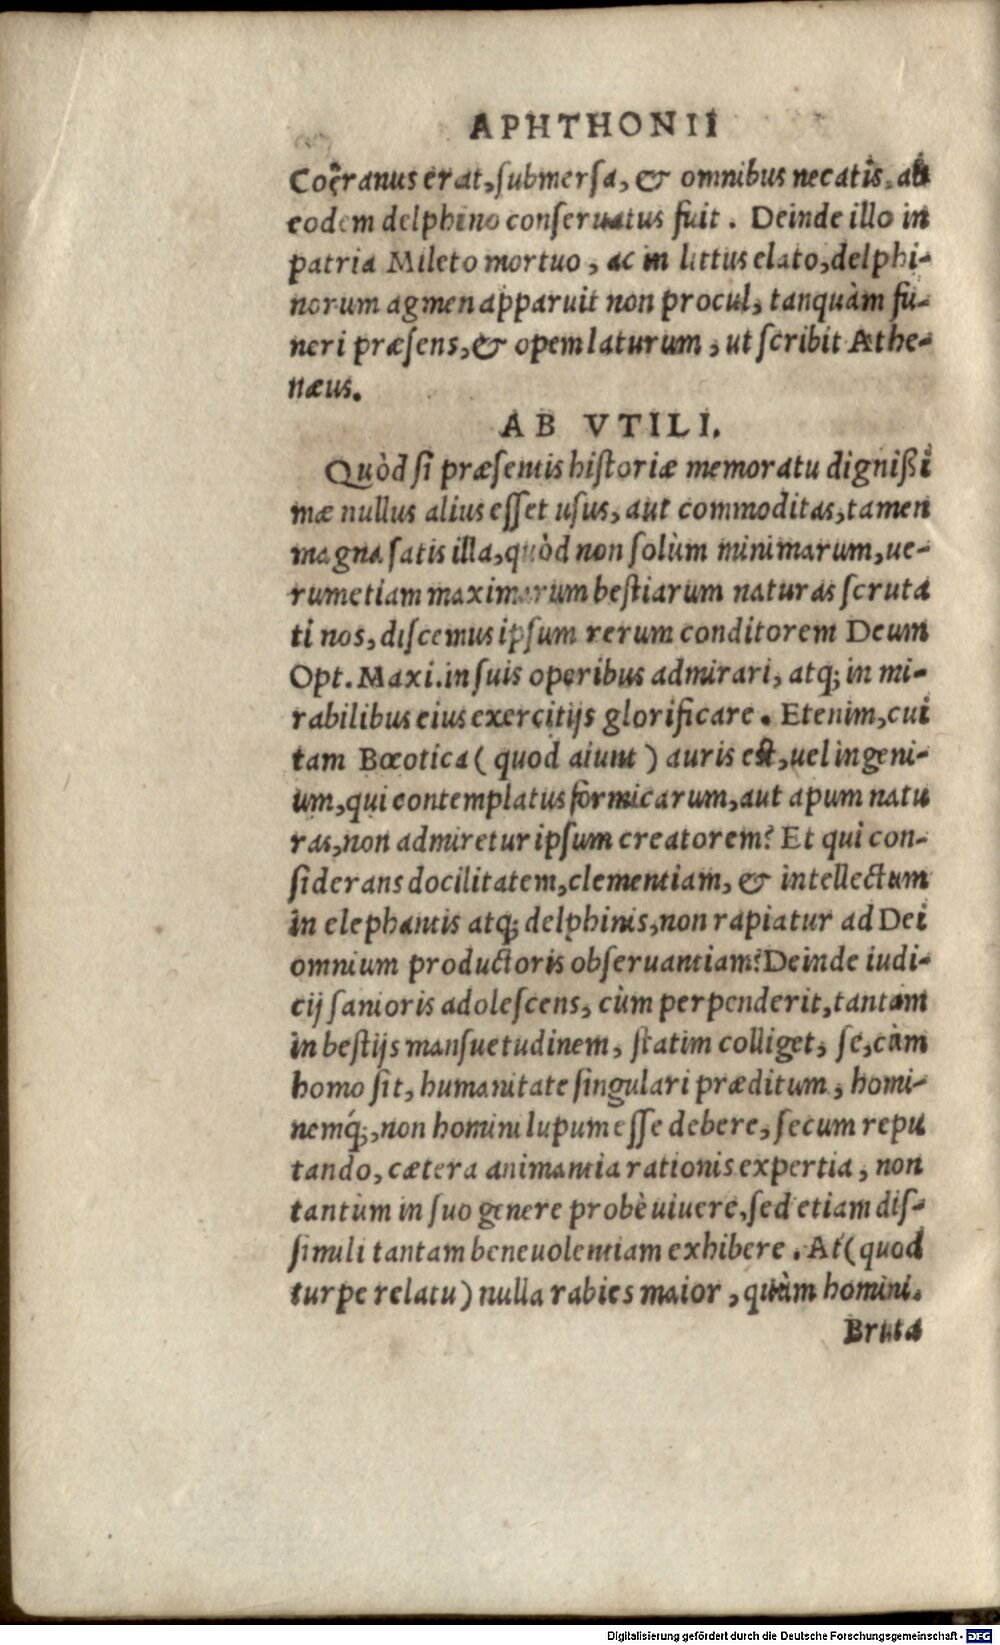 APHTHONII
Coęranus erat, submersa, & omnibus necatis, ab
eodem delphino conseruatus fuit. Deinde illo in
patria Mileto mortuo, ac in littus elato, delphi-
norum agmen apparuit non procul, tanquàm fu-
neri præsens, & opem laturum, ut scribit Athe-
næus.
AB VTILI.
Quòd si præsentis historiæ memoratu dignißi
mæ nullus alius esset usus, aut commoditas, tamen
magna satis illa, quòd non solùm minimarum, ue-
rumetiam maximarum bestiarum naturas scruta
ti nos, discemus ipsum rerum conditorem Deum
Opt. Maxi. in suis operibus admirari, atq; in mi-
rabilibus eius exercitijs glorificare. Etenim, cui
tam Bœotica (quod aiunt) auris est, uel ingeni-
um, qui contemplatus formicarum, aut apum natu
ras, non admiretur ipsum creatorem? Et qui con-
siderans docilitatem, clementiam, & intellectum
in elephantis atq; delphinis, non rapiatur ad Dei
omnium productoris obseruantiam? Deinde iudi-
cij sanioris adolescens, cùm perpenderit, tantam
in bestijs mansuetudinem, statim colliget, se, cùm
homo sit, humanitate singulari præditum, homi-
nemq́;, non homini lupum esse debere, secum repu
tando, cætera animantia rationis expertia, non
tantùm in suo genere probè uiuere, sed etiam dis-
simili tantam beneuolentiam exhibere. At (quod
turpe relatu) nulla rabies maior, quàm homini.
Bruta
Digitalisierung gefördert durch die Deutsche Forschungsgemeinschaft - DFG